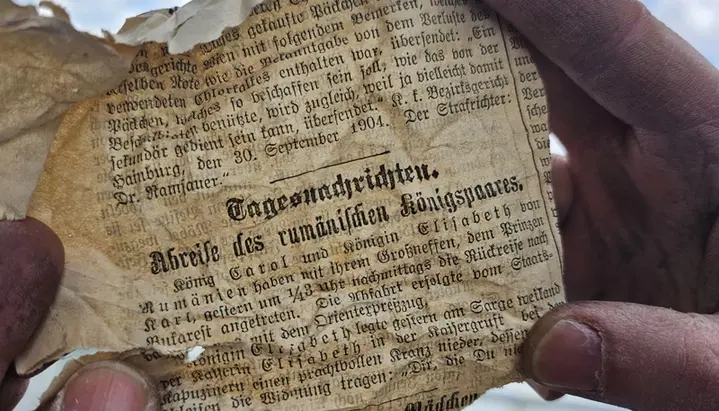 gekaufte Päckchen, welches
Wien mit folgendem Bemerken,
selben Note wie die Bekanntgabe von dem Verluste des
Chlorkalkes enthalten war, übersendet: „Ein
verwendeten so beschaffen sein soll, wie das von der
Päckchen, welches benützte, wird zugleich, weil ja vielleicht damit
sekundär gedient sein kann, übersendet. K. k. Bezirksgericht
Hainburg, den 30. September 1904. Der Strafrichter:
Dr. Ramjauer.“
Tagesnachrichten.
Abreise des rumänischen Königspaares.
König Carol und Königin Elisabeth von
Rumänien haben mit ihrem Großneffen, dem Prinzen
Karl, gestern um ½3 Uhr nachmittags die Rückreise nach
Bukarest angetreten. Die Abfahrt erfolgte vom Staats-
mit dem Orientexpreßzug.
Königin Elisabeth legte gestern am Sarge weiland
der Kaiserin Elisabeth in der Kaisergruft bei den
Kapuzinern einen prachtvollen Kranz nieder, dessen
Schleifen die Widmung tragen: „Dir, die Du
Mädchen